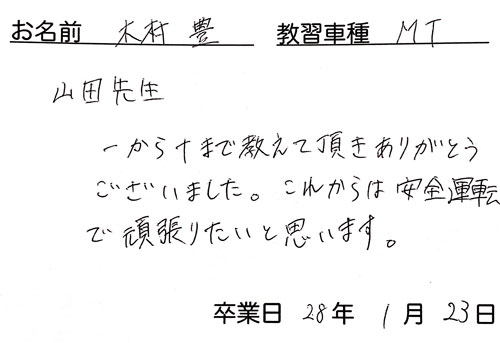 お名前 木村 豊 教習車種 MT
山田先生
一から十まで教えて頂きありがとう
ございました。これからは安全運転
で頑張りたいと思います。
卒業日 28年 1月 23日